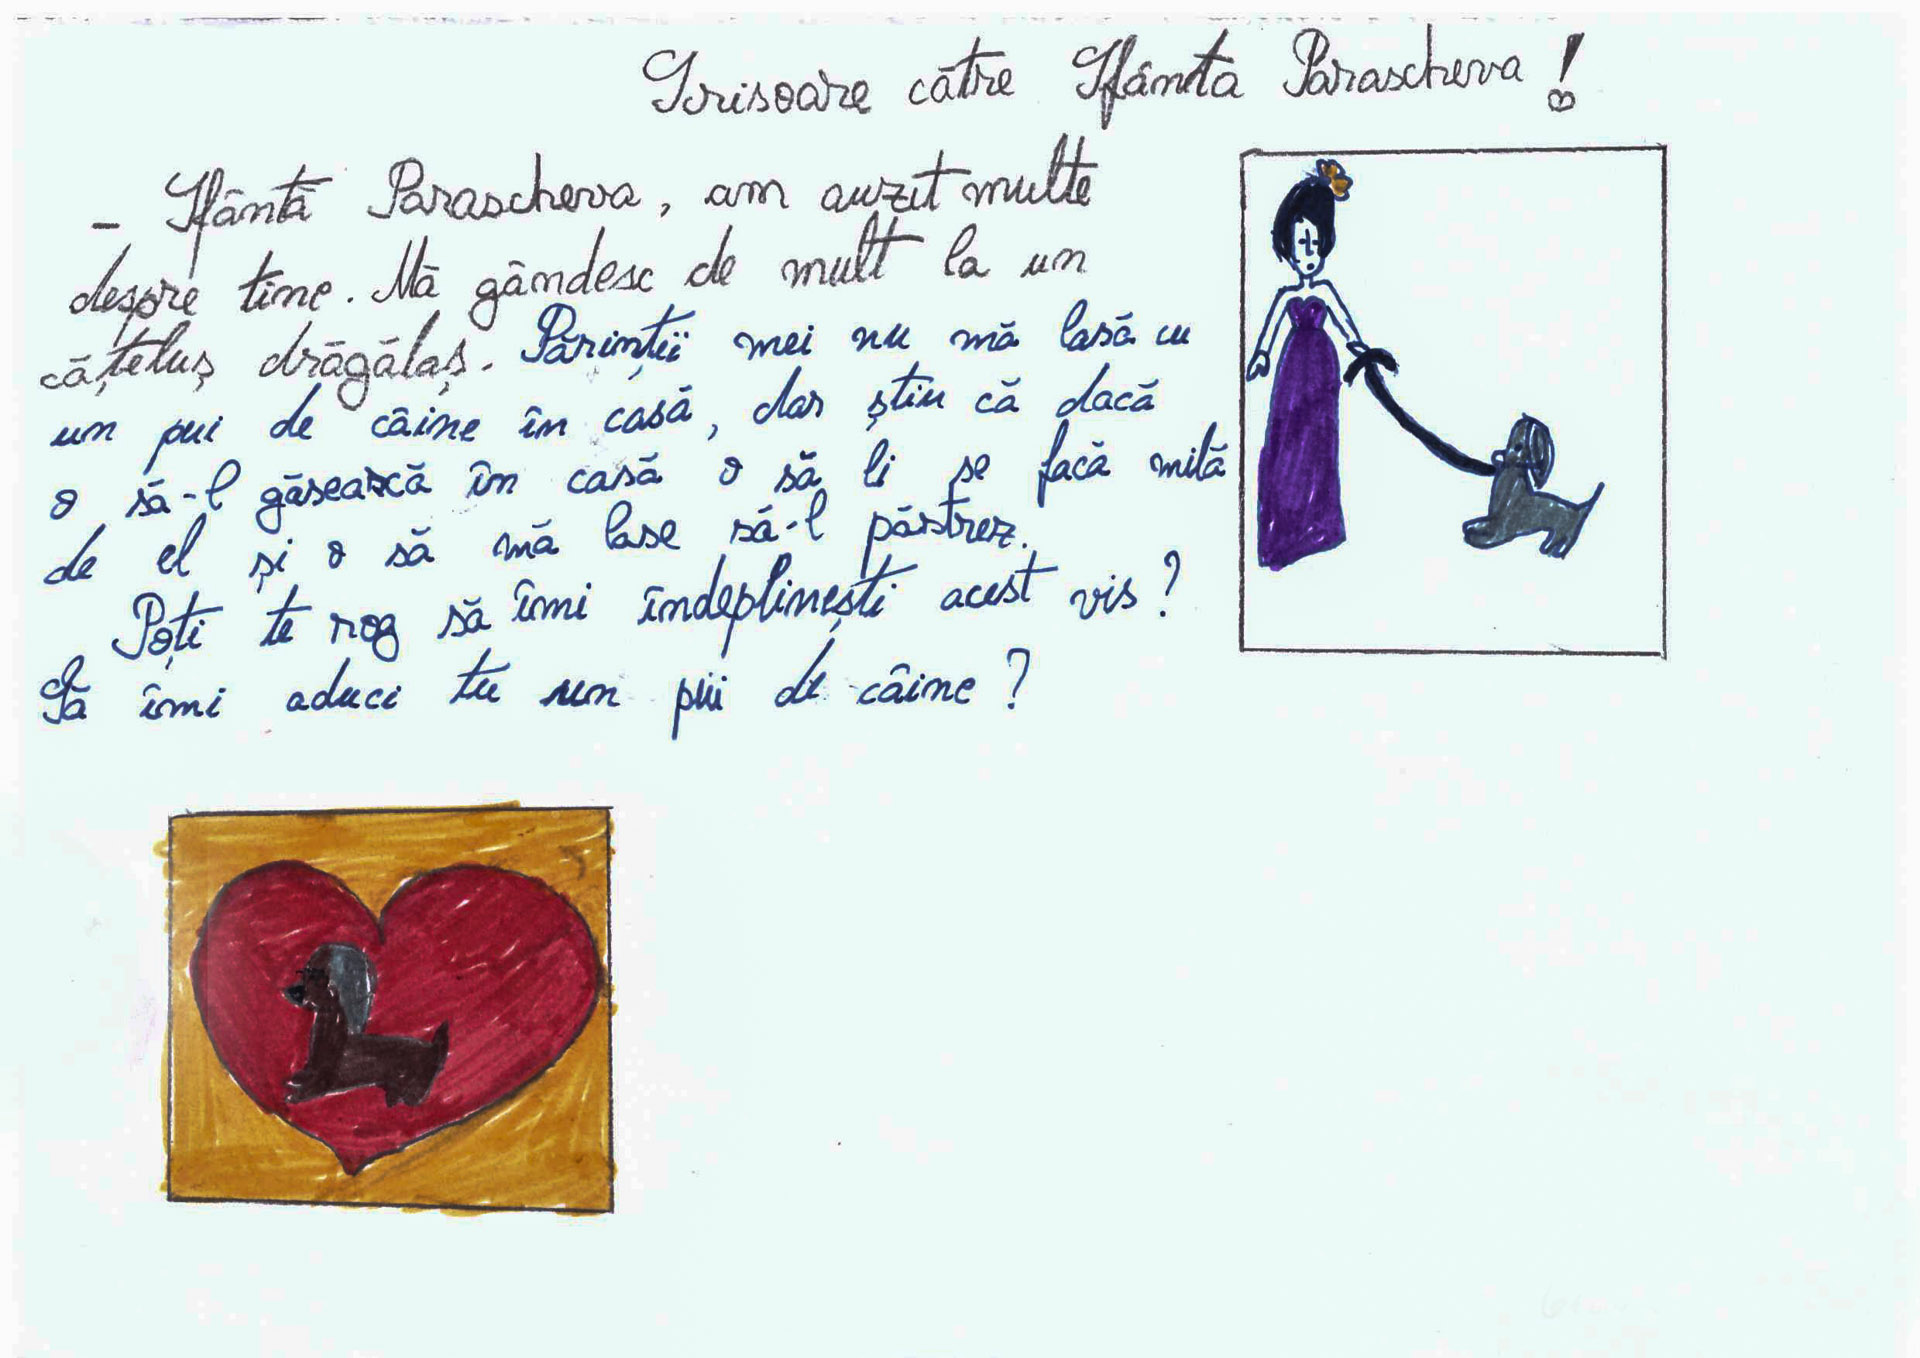 Scrisoare către Sfânta Parascheva!
- Sfântă Parascheva, am auzit multe
despre tine. Mă gândesc de mult la un
cățeluș drăgălaș. Părinții mei nu mă lasă cu
un pui de câine în casă, dar știu că dacă
o să-l găsească în casă o să li se facă milă
de el și o să mă lase să-l păstrez.
Poți te rog să îmi îndeplinești acest vis?
Să îmi aduci tu un pui de câine?